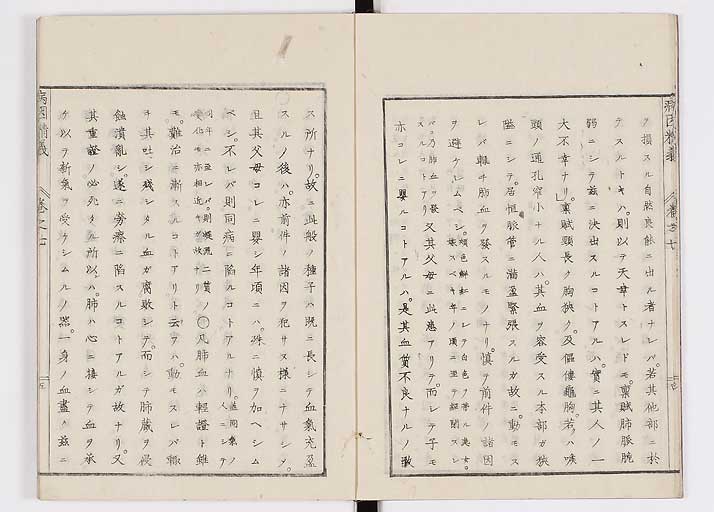 病因精義　卷之七
ヲ損スル自然衰餘ニ出ル者ナレバ。若其他部ニ於
テスルトキハ。則以テ天幸トスレドモ。稟賦肺脈脆
弱ニシテ茲ニ決出スルコトアルハ。實ニ其人ノ一
大不幸ナリ。」稟賦頸長ク胸狹ク。及傴僂龜胸。若クハ喉
頭ノ通孔窄小ナル人ハ。其血ヲ容受スル本部ガ狹
隘ニシテ。居恒脈管ニ滿盈緊張スルガ故ニ。動モス
レバ輙チ肺血ヲ發スルモノナリ。慎テ前件ノ諸因
ヲ避ケシムベシ。
バ。乃肺血ヲ發スルコトアリ 又其父母ニ此患アリテ。而シテ子モ
亦コレニ嬰ルコトアルハ。是其血質不良ナルノ致
ス所ナリ。故ニ此般ノ種子ハ既ニ長シテ血氣充盈
スルノ後ハ。亦前件ノ諸因ヲ犯サヌ樣ニナサシメ。
且其父母コレニ嬰シ年頃ニハ。殊ニ慎ヲ加ヘシム
ベシ。不レバ則同病ニ陷ルコトアルナリ。
○凡肺血ハ輕證ト雖
モ。難治ニ漸スルコトアリト云フハ。動モスレバ輙
チ其吐シ殘シタル血ガ腐敗シテ。而シテ肺臟ヲ侵
蝕潰亂シ。遂ニ勞瘵ニ陷スルコトアルガ故ナリ。又
其重證ノ必死タル所以ハ。肺ハ心ニ接シテ血ヲ承
ケ以テ新氣ヲ受ケシムルノ器。一身ノ血盡ク茲ニ
病因精義　卷之七